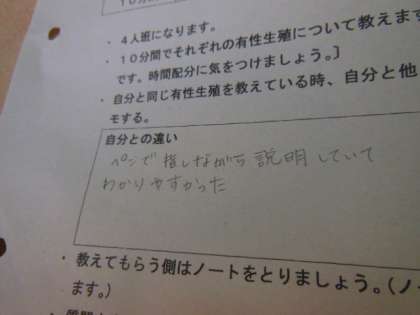 ・４人班になります。
・１０分間でそれぞれの有性生殖について教えます
です。時間配分に気をつけましょう。］
・自分と同じ有性生殖を教えている時、自分と他
モする。
自分との違い
ペンで指しながら説明していて
わかりやすかった
・教えてもらう側はノートをとりましょう。（ノ
ます。）